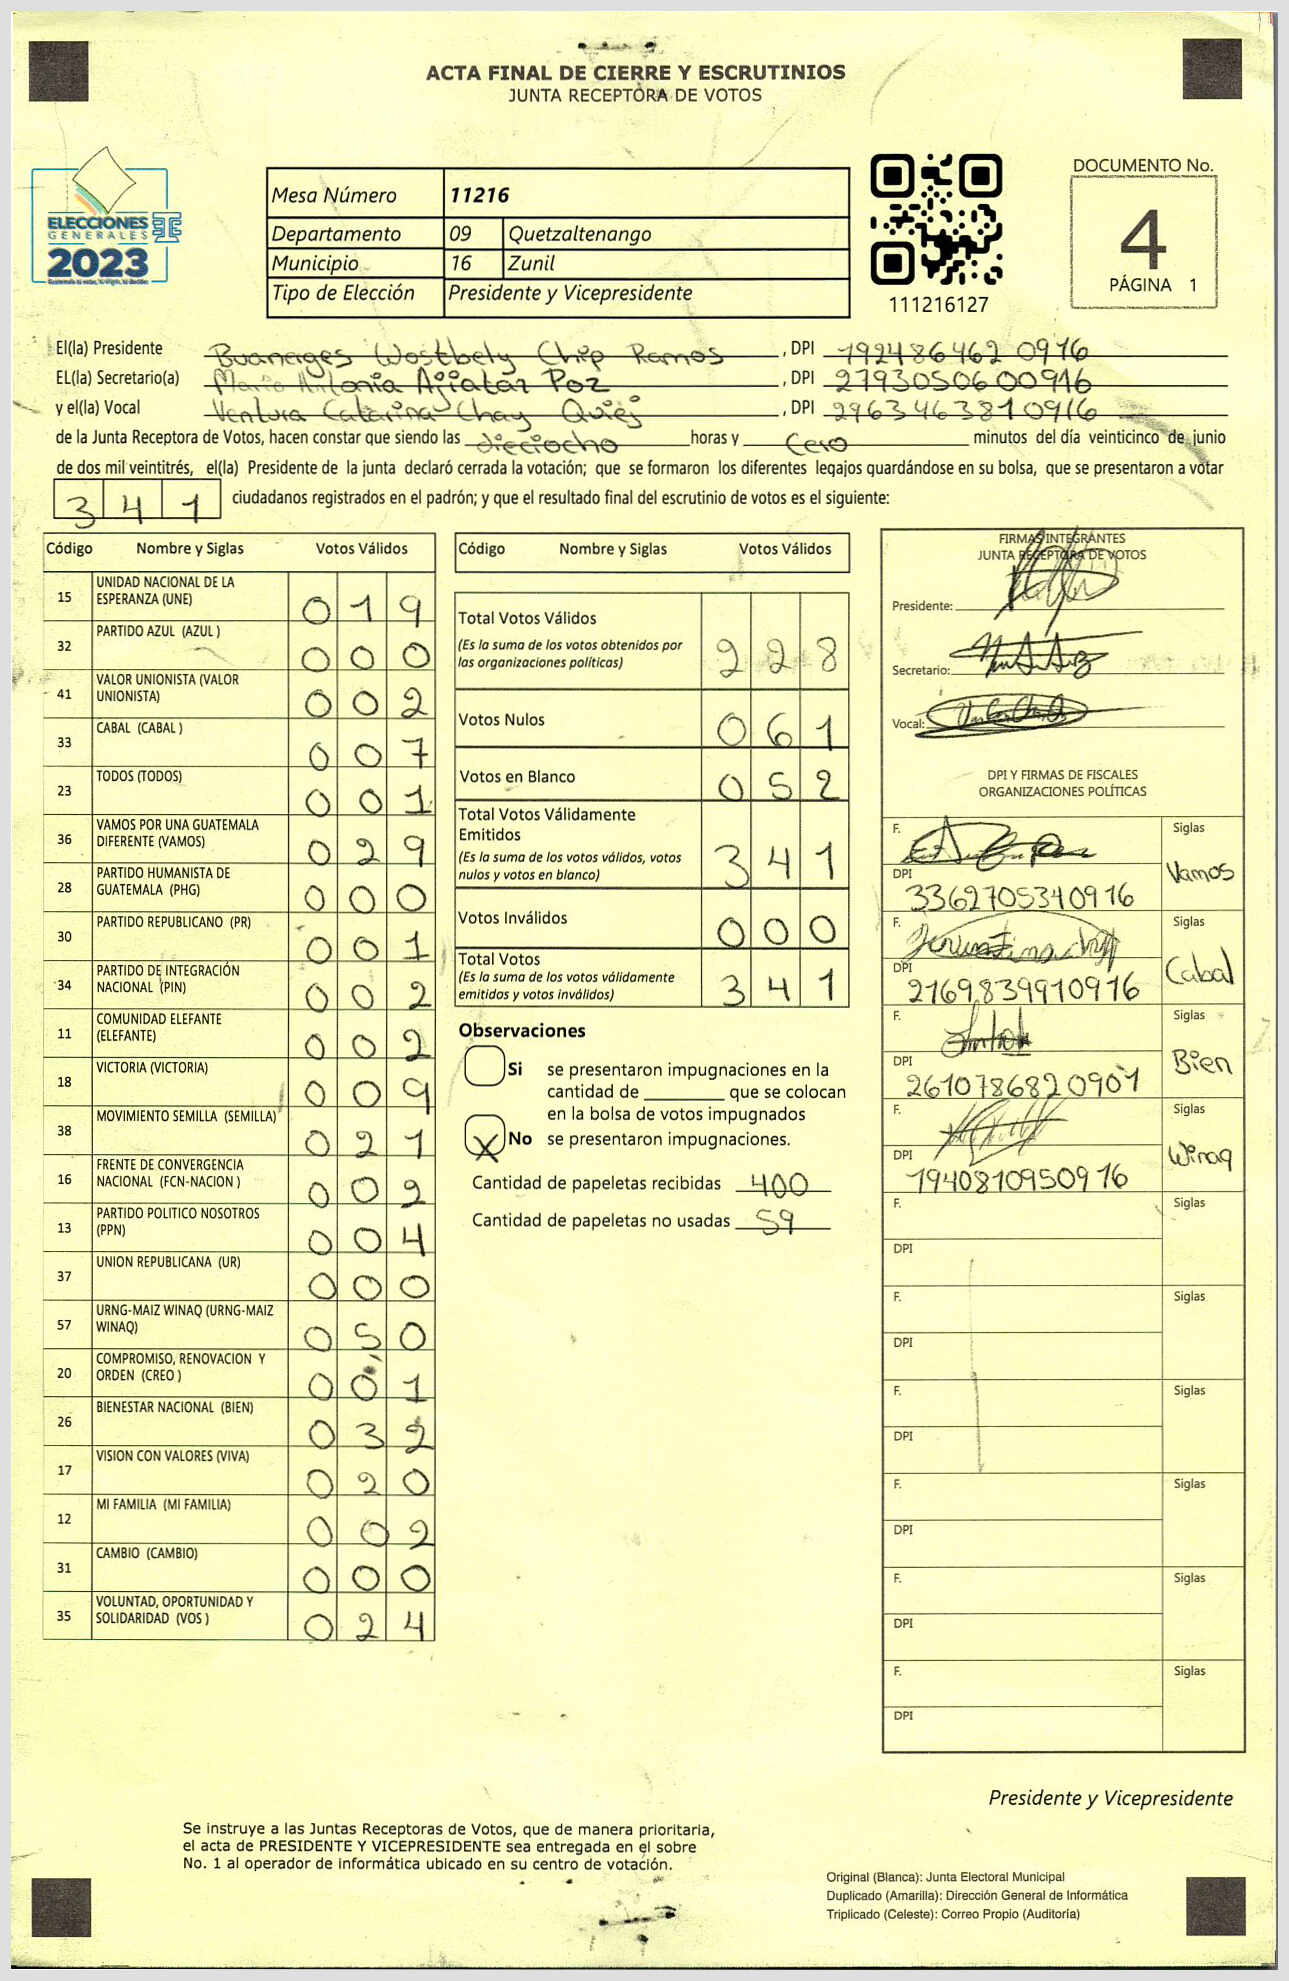 ACTA FINAL DE CIERRE Y ESCRUTINIOS
JUNTA RECEPTORA DE VOTOS
ELECCIONES
GENERALES
2023
Mesa Número 11216
Departamento 09 Quetzaltenango
Municipio 16 Zunil
Tipo de Elección Presidente y Vicepresidente
111216127
DOCUMENTO No.
4
PÁGINA 1
El(la) Presidente Buanerges Wostbely Chip Ramos , DPI 192486462 0916
EL(la) Secretario(a) Mario Antonia Ajiatar Poz , DPI 2793050600916
y el(la) Vocal Ventura Catarina Chay Quiej , DPI 2963463810916
de la Junta Receptora de Votos, hacen constar que siendo las dieciocho horas y Cero minutos del día veinticinco de junio
de dos mil veintitrés, el(la) Presidente de la junta declaró cerrada la votación; que se formaron los diferentes legajos guardándose en su bolsa, que se presentaron a votar
341 ciudadanos registrados en el padrón; y que el resultado final del escrutinio de votos es el siguiente:
Código Nombre y Siglas Votos Válidos
15 UNIDAD NACIONAL DE LA ESPERANZA (UNE) 019
32 PARTIDO AZUL (AZUL ) 000
41 VALOR UNIONISTA (VALOR UNIONISTA) 002
33 CABAL (CABAL ) 007
23 TODOS (TODOS) 001
36 VAMOS POR UNA GUATEMALA DIFERENTE (VAMOS) 029
28 PARTIDO HUMANISTA DE GUATEMALA (PHG) 000
30 PARTIDO REPUBLICANO (PR) 001
34 PARTIDO DE INTEGRACIÓN NACIONAL (PIN) 002
11 COMUNIDAD ELEFANTE (ELEFANTE) 002
18 VICTORIA (VICTORIA) 009
38 MOVIMIENTO SEMILLA (SEMILLA) 021
16 FRENTE DE CONVERGENCIA NACIONAL (FCN-NACION ) 002
13 PARTIDO POLITICO NOSOTROS (PPN) 004
37 UNION REPUBLICANA (UR) 000
57 URNG-MAIZ WINAQ (URNG-MAIZ WINAQ) 050
20 COMPROMISO, RENOVACION Y ORDEN (CREO ) 001
26 BIENESTAR NACIONAL (BIEN) 032
17 VISION CON VALORES (VIVA) 020
12 MI FAMILIA (MI FAMILIA) 002
31 CAMBIO (CAMBIO) 000
35 VOLUNTAD, OPORTUNIDAD Y SOLIDARIDAD (VOS ) 024
Código Nombre y Siglas Votos Válidos
Total Votos Válidos 228
(Es la suma de los votos obtenidos por
las organizaciones políticas)
Votos Nulos 061
Votos en Blanco 052
Total Votos Válidamente
Emitidos 341
(Es la suma de los votos válidos, votos
nulos y votos en blanco)
Votos Inválidos 000
Total Votos 341
(Es la suma de los votos válidamente
emitidos y votos inválidos)
Observaciones
Si se presentaron impugnaciones en la
cantidad de ________ que se colocan
en la bolsa de votos impugnados
X No se presentaron impugnaciones.
Cantidad de papeletas recibidas 400
Cantidad de papeletas no usadas 59
FIRMAS INTEGRANTES
JUNTA RECEPTORA DE VOTOS
Presidente:
Secretario:
Vocal:
DPI Y FIRMAS DE FISCALES
ORGANIZACIONES POLÍTICAS
F. Siglas
Vamos
DPI
3362705340916
F. Siglas
Cabal
DPI
2169839910916
F. Siglas
Bien
DPI
2610786820901
F. Siglas
Winaq
DPI
1940810950916
F. Siglas
DPI
F. Siglas
DPI
F. Siglas
DPI
F. Siglas
DPI
F. Siglas
DPI
F. Siglas
DPI
Presidente y Vicepresidente
Se instruye a las Juntas Receptoras de Votos, que de manera prioritaria,
el acta de PRESIDENTE Y VICEPRESIDENTE sea entregada en el sobre
No. 1 al operador de informática ubicado en su centro de votación.
Original (Blanca): Junta Electoral Municipal
Duplicado (Amarilla): Dirección General de Informática
Triplicado (Celeste): Correo Propio (Auditoría)